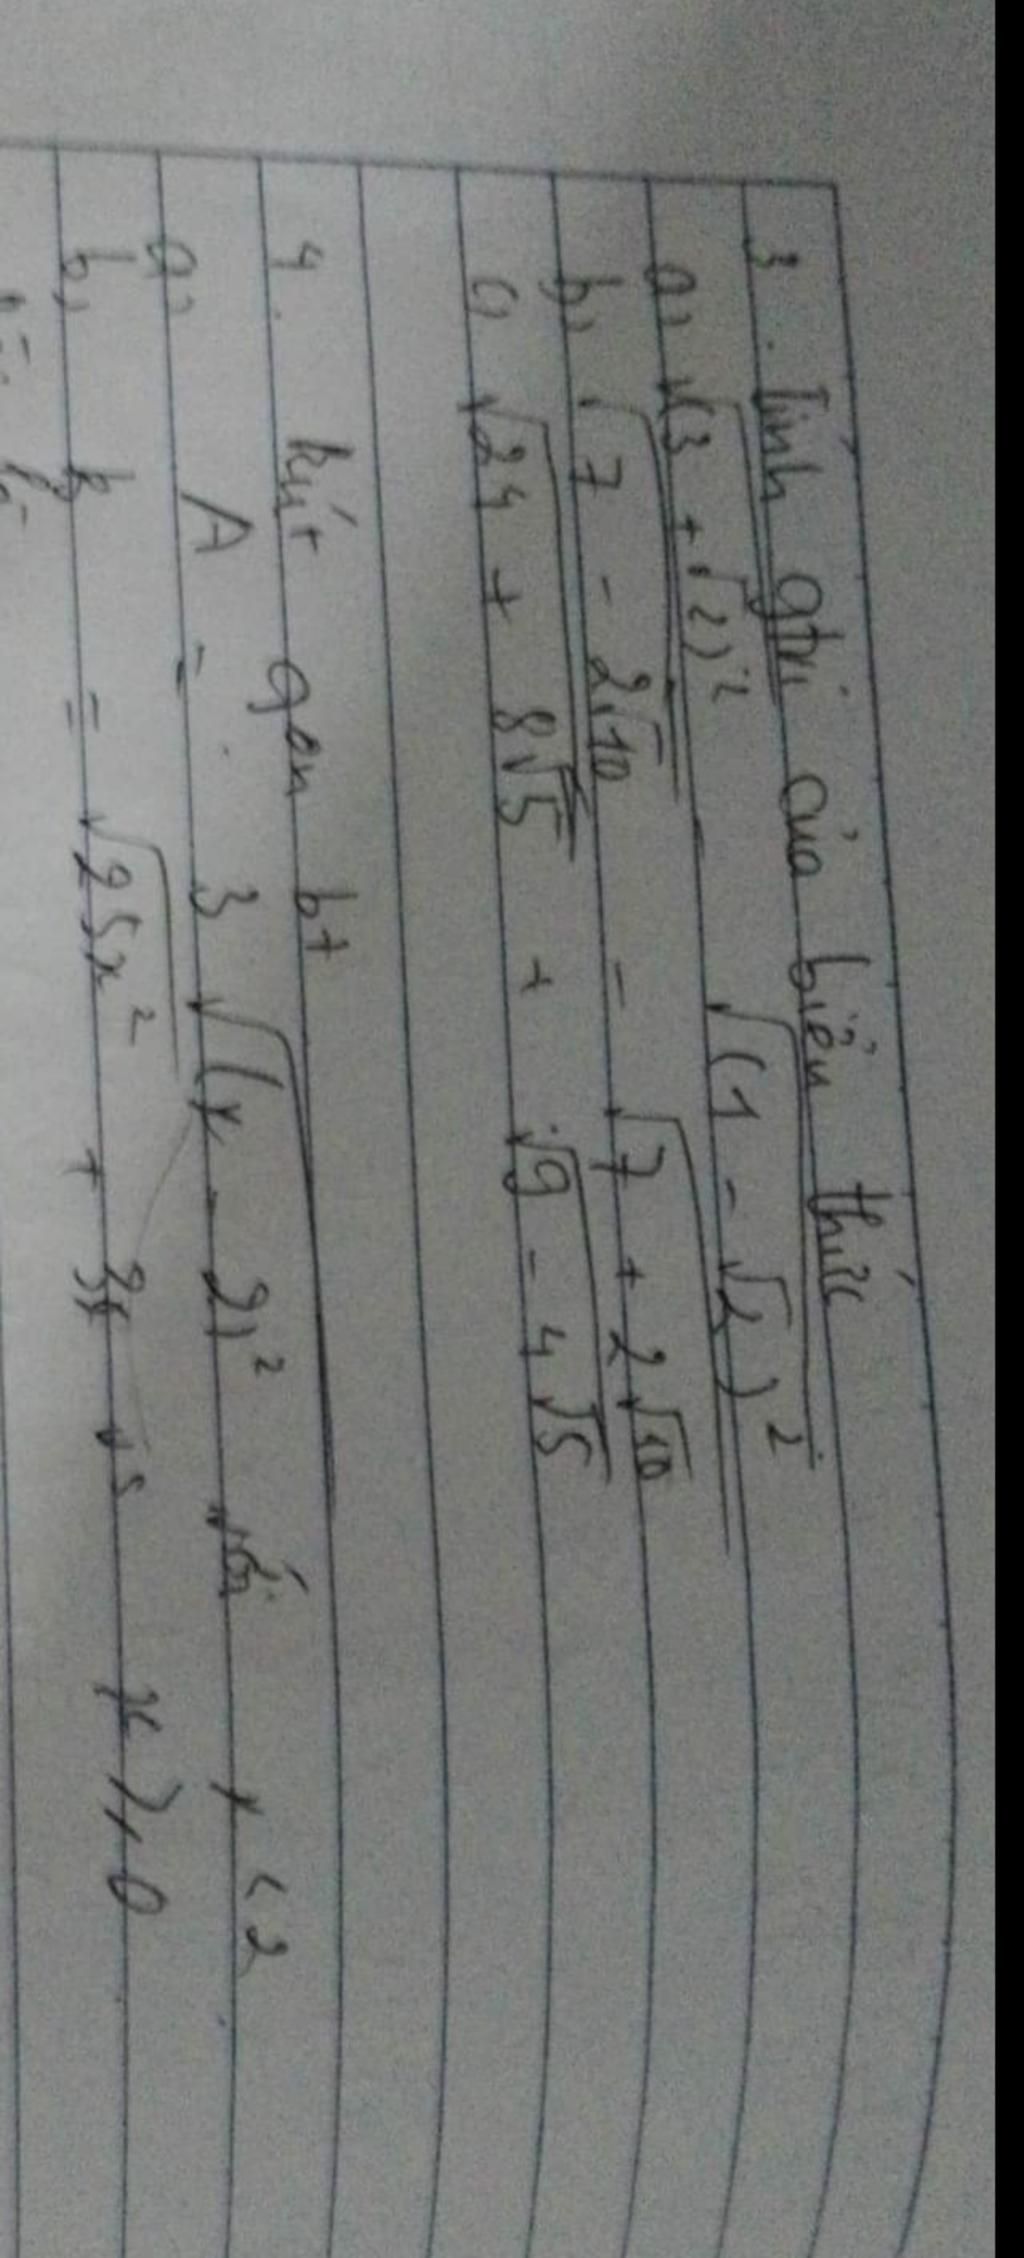 3. Tính gtrị của biểu thức
a, √(3 + √2)² √(1 - √2)²
b, √7 - 2√10 - √7 + 2√10
c, √24 + 8√5 + √9 - 4√5
4. Rút gọn bt
a, A = 3√(x - 2)² với x < 2
b, B = √25x² + 3x vs x ≥ 0